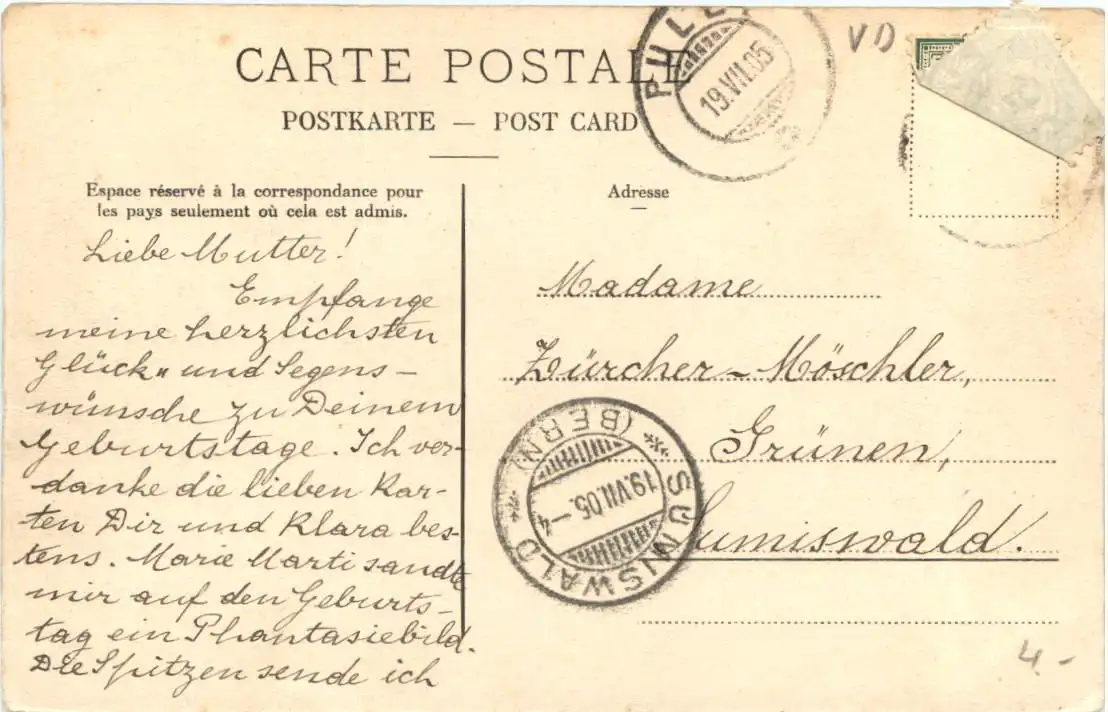 CARTE POSTALE
POSTKARTE — POST CARD
Espace réservé à la correspondance pour
les pays seulement où cela est admis.
Adresse
PULLY
19.VII.05
VD
Liebe Mutter!
Empfange
meine herzlichsten
Glück„ und Segens-
wünsche zu Deinem
Geburtstage. Ich ver-
danke die lieben Kar-
ten Dir und Klara bes-
tens. Marie Marti sandte
mir auf den Geburts-
tag ein Phantasiebild.
Die Spitzen sende ich
Madame
Zürcher-Möschler,
Grünen,
Sumiswald.
SUMISWALD
(BERN)
19.VII.05.-4
4.-